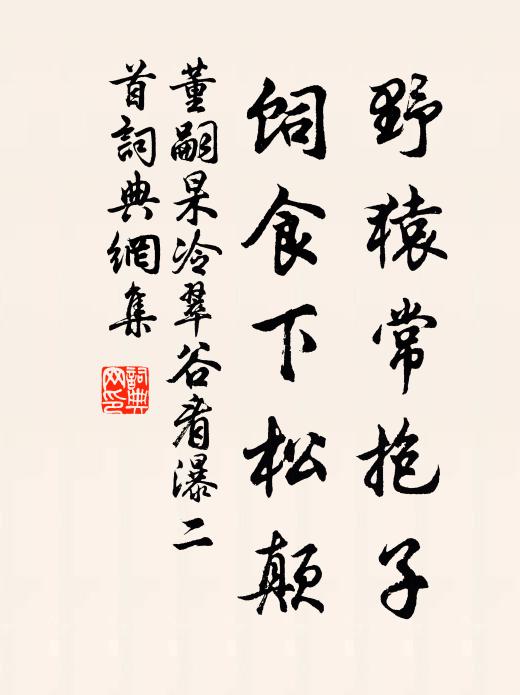 野猿常抱子
飼食下松顛
董嗣杲冷翠谷看瀑二
首詞典網集
詞典
网印